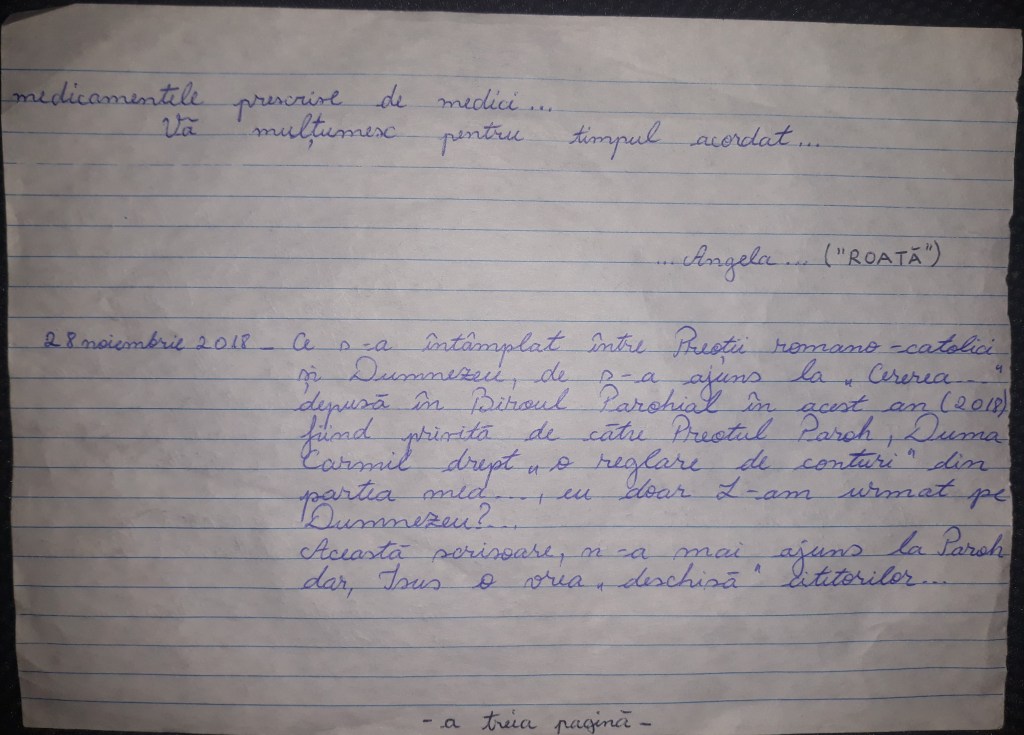 medicamentele prescrise de medici...
Vă mulțumesc pentru timpul acordat...
...Angela... ("ROATĂ")
28 noiembrie 2018 - Ce s-a întâmplat între Preoții romano-catolici
și Dumnezeu, de s-a ajuns la „Cererea..."
depusă în Biroul Parohial în acest an (2018)
fiind privită de către Preotul Paroh, Duma
Carmil drept „o reglare de conturi" din
partea mea..., eu doar L-am urmat pe
Dumnezeu?...
Această scrisoare, n-a mai ajuns la Paroh
dar, Isus o vrea „deschisă" cititorilor...
- a treia pagină -